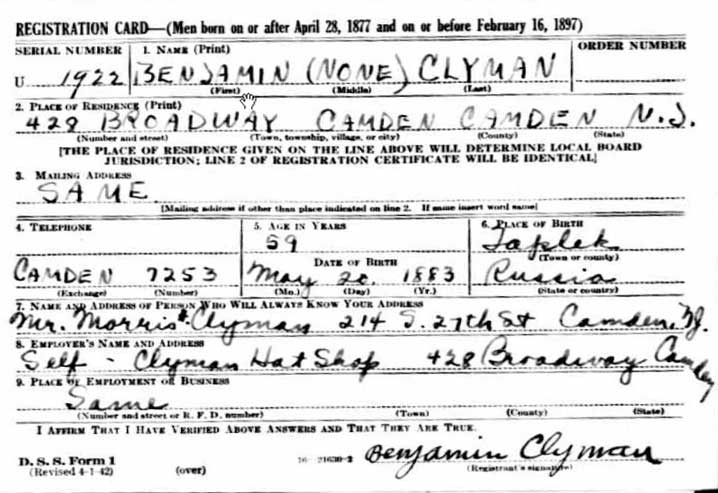 REGISTRATION CARD—(Men born on or after April 28, 1877 and on or before February 16, 1897)
SERIAL NUMBER 1. NAME (Print) ORDER NUMBER
U 1922 BENJAMIN (NONE) CLYMAN
(First) (Middle) (Last)
2. PLACE OF RESIDENCE (Print)
428 BROADWAY CAMDEN CAMDEN N.J.
(Number and street) (Town, township, village, or city) (County) (State)
[THE PLACE OF RESIDENCE GIVEN ON THE LINE ABOVE WILL DETERMINE LOCAL BOARD
JURISDICTION; LINE 2 OF REGISTRATION CERTIFICATE WILL BE IDENTICAL]
3. MAILING ADDRESS
SAME
[Mailing address if other than place indicated on line 2. If same insert word same]
4. TELEPHONE 5. AGE IN YEARS 6. PLACE OF BIRTH
59
DATE OF BIRTH (Town or county)
CAMDEN 7253 May 20 1883 Russia
(Exchange) (Number) (Mo.) (Day) (Yr.) (State or country)
7. NAME AND ADDRESS OF PERSON WHO WILL ALWAYS KNOW YOUR ADDRESS
Mr. Morris Clyman 214 S. 27th St Camden, NJ.
8. EMPLOYER'S NAME AND ADDRESS
Self - Clyman Hat Shop 428 Broadway Camden
9. PLACE OF EMPLOYMENT OR BUSINESS
Same
(Number and street or R. F. D. number) (Town) (County) (State)
I AFFIRM THAT I HAVE VERIFIED ABOVE ANSWERS AND THAT THEY ARE TRUE.
D. S. S. Form 1 16—21630-2 Benjamin Clyman
(Revised 4-1-42) (over) (Registrant's signature)